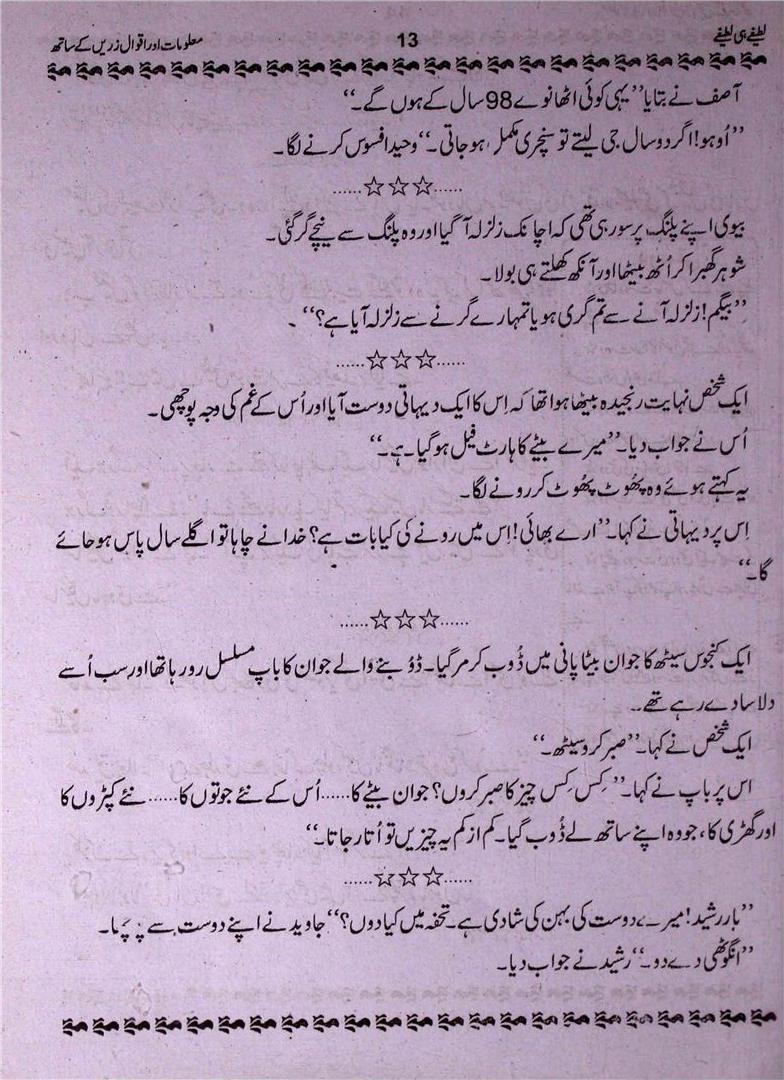 لطیفے ہی لطیفے 13 معلومات اور اقوال زریں کے ساتھ
آصف نے بتایا ’’یہی کوئی اٹھانوے 98 سال کے ہوں گے۔‘‘
’’اُوہو! اگر دو سال جی لیتے تو سنچری مکمل ہو جاتی۔‘‘ وحید افسوس کرنے لگا۔
......☆☆☆......
بیوی اپنے پلنگ پر سو رہی تھی کہ اچانک زلزلہ آ گیا اور وہ پلنگ سے نیچے گر گئی۔
شوہر گھبرا کر اُٹھ بیٹھا اور آنکھ کھلتے ہی بولا۔
’’بیگم! زلزلہ آنے سے تم گری ہو یا تمہارے گرنے سے زلزلہ آیا ہے؟‘‘۔
......☆☆☆......
ایک شخص نہایت رنجیدہ بیٹھا ہوا تھا کہ اِس کا ایک دیہاتی دوست آیا اور اُس کے غم کی وجہ پوچھی۔
اُس نے جواب دیا۔ ’’میرے بیٹے کا ہارٹ فیل ہو گیا ہے۔‘‘
یہ کہتے ہوئے وہ پھُوٹ پھُوٹ کر رونے لگا۔
اِس پر دیہاتی نے کہا۔ ’’ارے بھائی! اِس میں رونے کی کیا بات ہے؟ خدا نے چاہا تو اگلے سال پاس ہو جائے
گا۔‘‘
......☆☆☆......
ایک کنجوس سیٹھ کا جوان بیٹا پانی میں ڈُوب کر مر گیا۔ ڈوُبنے والے جوان کا باپ مسلسل رو رہا تھا اور سب اُسے
دلاسا دے رہے تھے۔
ایک شخص نے کہا۔ ’’صبر کرو سیٹھ۔‘‘
اس پر باپ نے کہا۔ ’’کِس کِس چیز کا صبر کروں؟ جوان بیٹے کا...... اُس کے نئے جوتوں کا...... نئے کپڑوں کا
اور گھڑی کا، جو وہ اپنے ساتھ لے ڈُوب گیا۔ کم از کم یہ چیزیں تو اُتار جاتا۔‘‘
......☆☆☆......
’’یار رشید! میرے دوست کی بہن کی شادی ہے۔ تحفہ میں کیا دوں؟‘‘ جاوید نے اپنے دوست سے
’’انگوٹھی دے دو۔‘‘ رشید نے جواب دیا۔